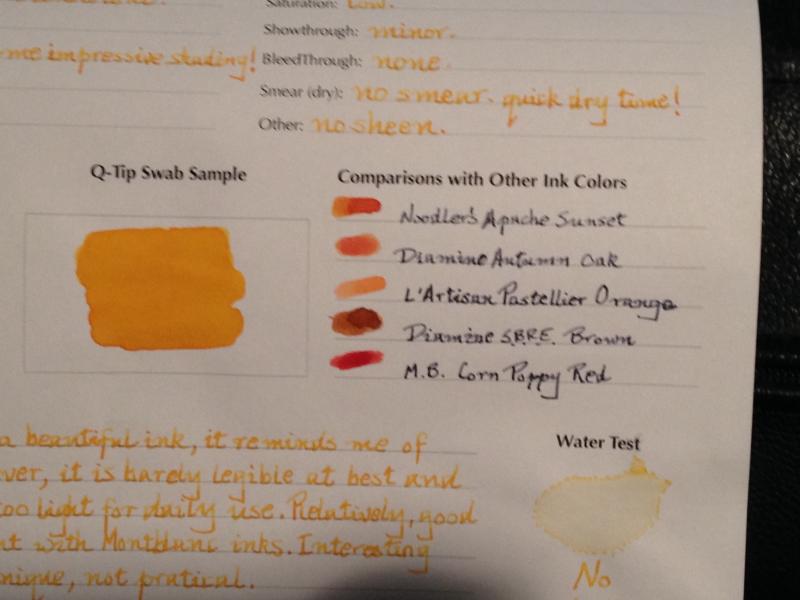 Saturation: Low.
Showthrough: minor.
me impressive shading! BleedThrough: none.
Smear (dry): no smear. quick dry time!
Other: no sheen.
Q-Tip Swab Sample
Comparisons with Other Ink Colors
Noodler's Apache Sunset
Diamine Autumn Oak
L'Artisan Pastellier Orange
Diamine S.B.R.E. Brown
M.B. Corn Poppy Red
a beautiful ink, it reminds me of
ver, it is barely legible at best and
too light for daily use. Relatively, good
nt with Montblanc inks. Interesting
nique, not pratical.
Water Test
No